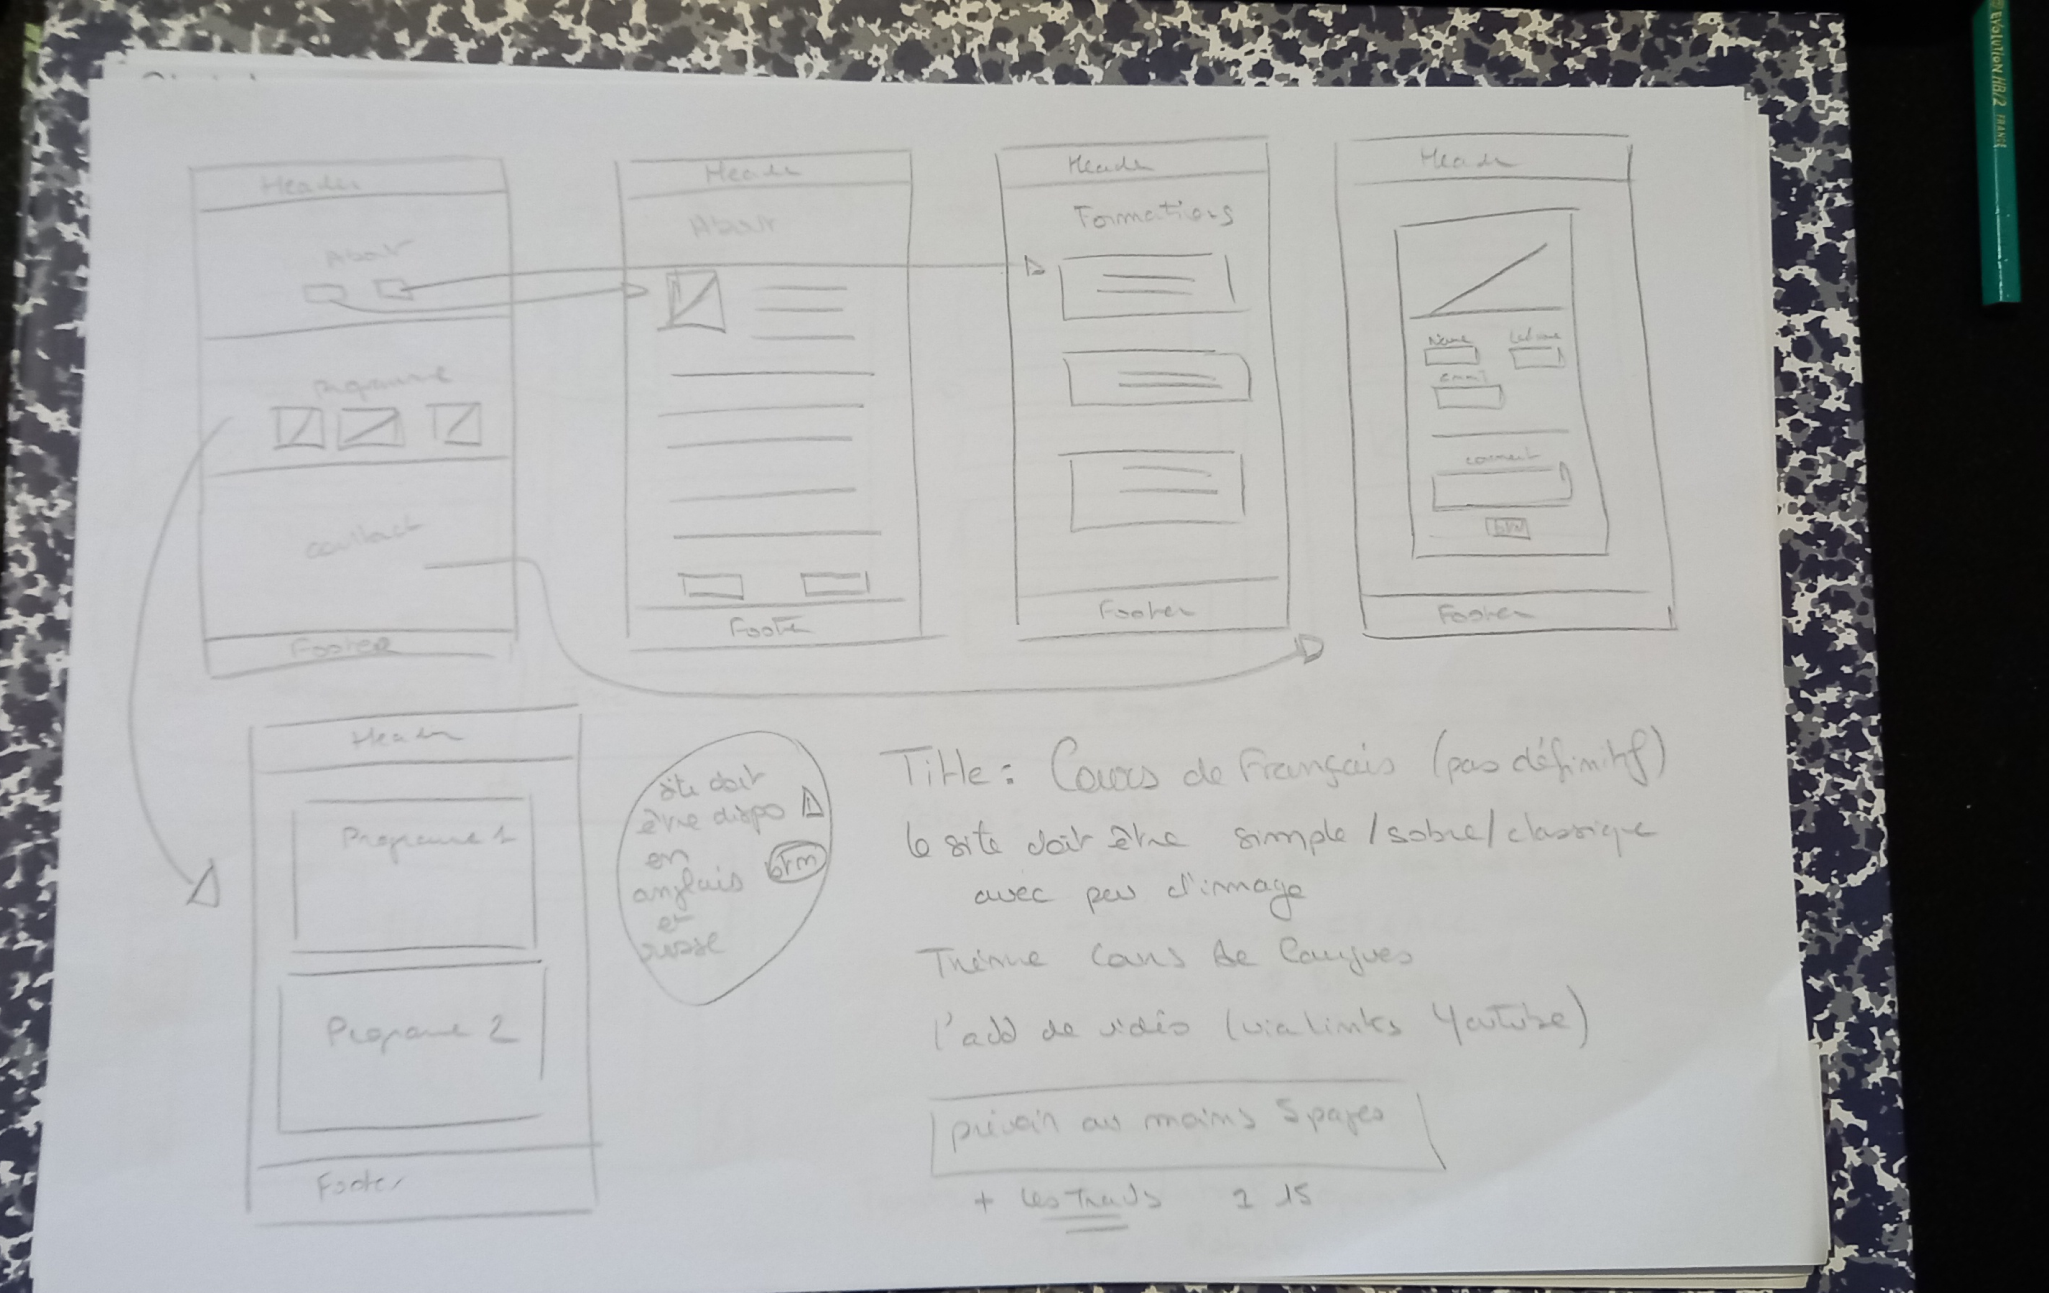 EVOLUTION/HB/2 FRANCE
Header
About
Programme
Contact
Footer
Header
About
Footer
Header
Formations
Footer
Header
Name
email
comment
Footer
Header
Programe 1
Programe 2
Footer
site doit
être dispo
en
anglais
et
russe
Title : Cours de Français (pas définitif)
le site doit être simple/sobre/classique
avec peu d'image
Thème Cours de Langues
l'add de vidéo (via links Youtube)
prévoir au moins 5 pages
+ les trads 15